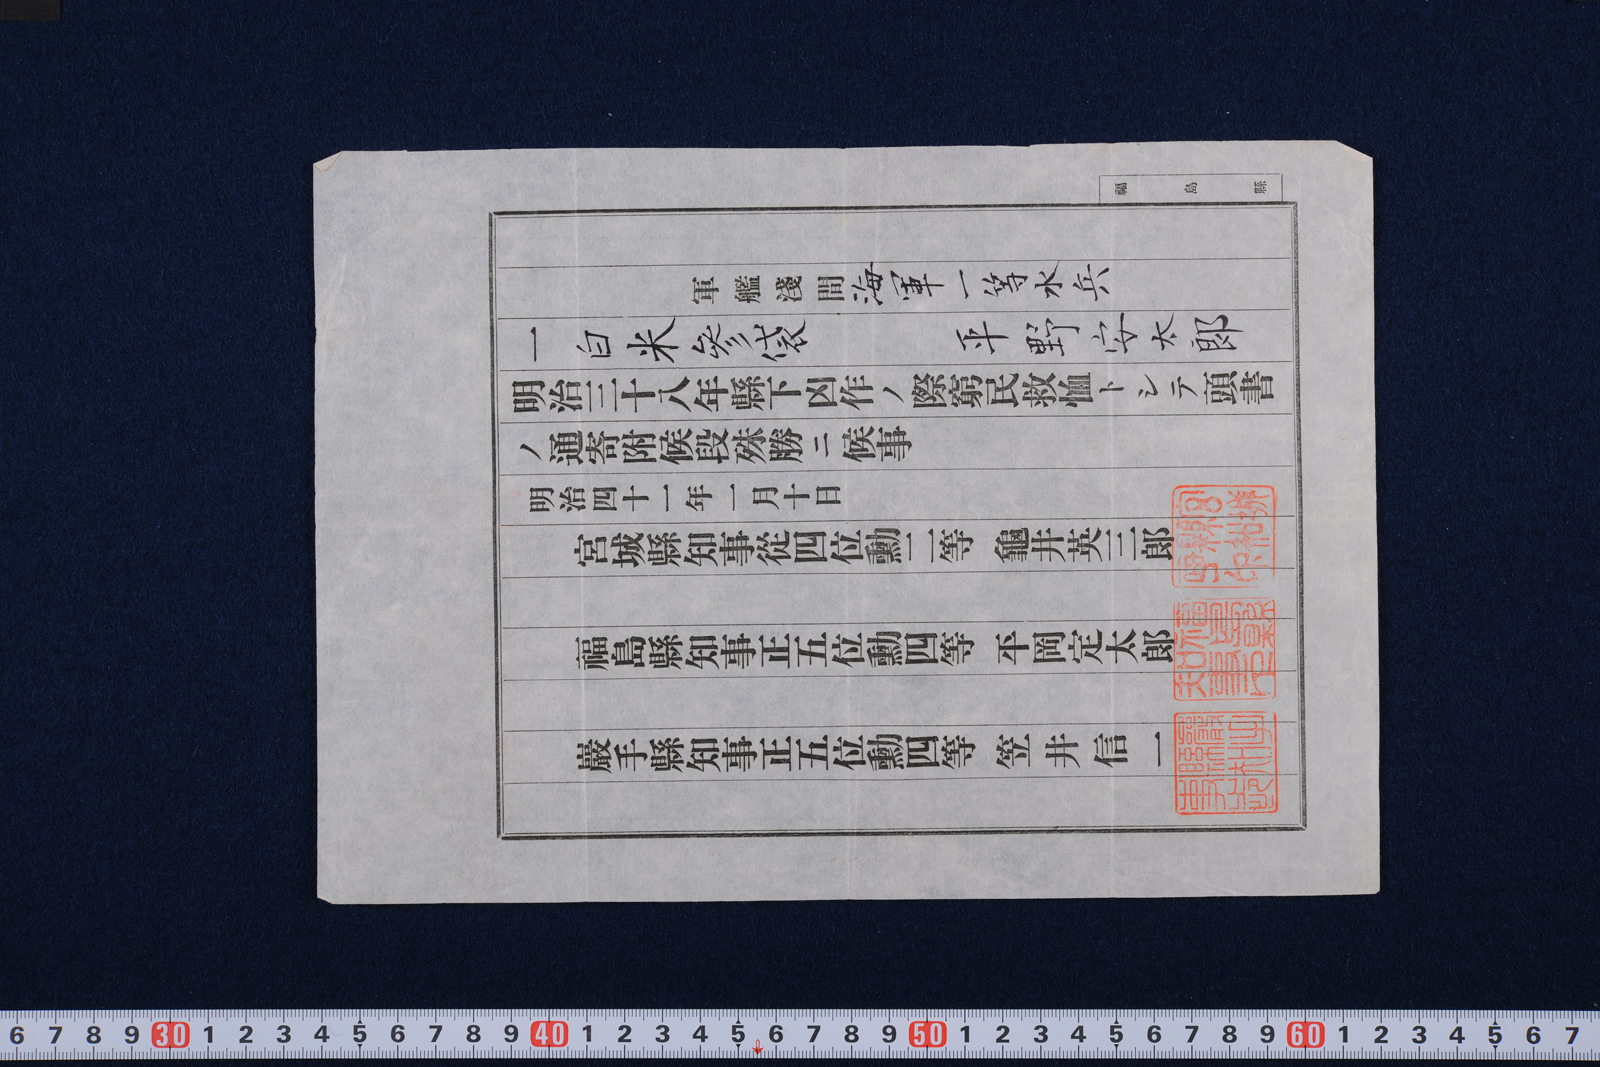 福島縣
軍艦淺間海軍一等水兵
平野安太郎
一白米參袋
明治三十八年縣下凶作ノ際窮民救恤トシテ頭書
ノ通寄附候段殊勝ニ候事
明治四十一年一月十日
宮城縣知事從四位勳二等 龜井英三郎
福島縣知事正五位勳四等 平岡定太郎
巖手縣知事正五位勳四等 笠井信一
6 7 8 9 30 1 2 3 4 5 6 7 8 9 40 1 2 3 4 5 6 7 8 9 50 1 2 3 4 5 6 7 8 9 60 1 2 3 4 5 6 7